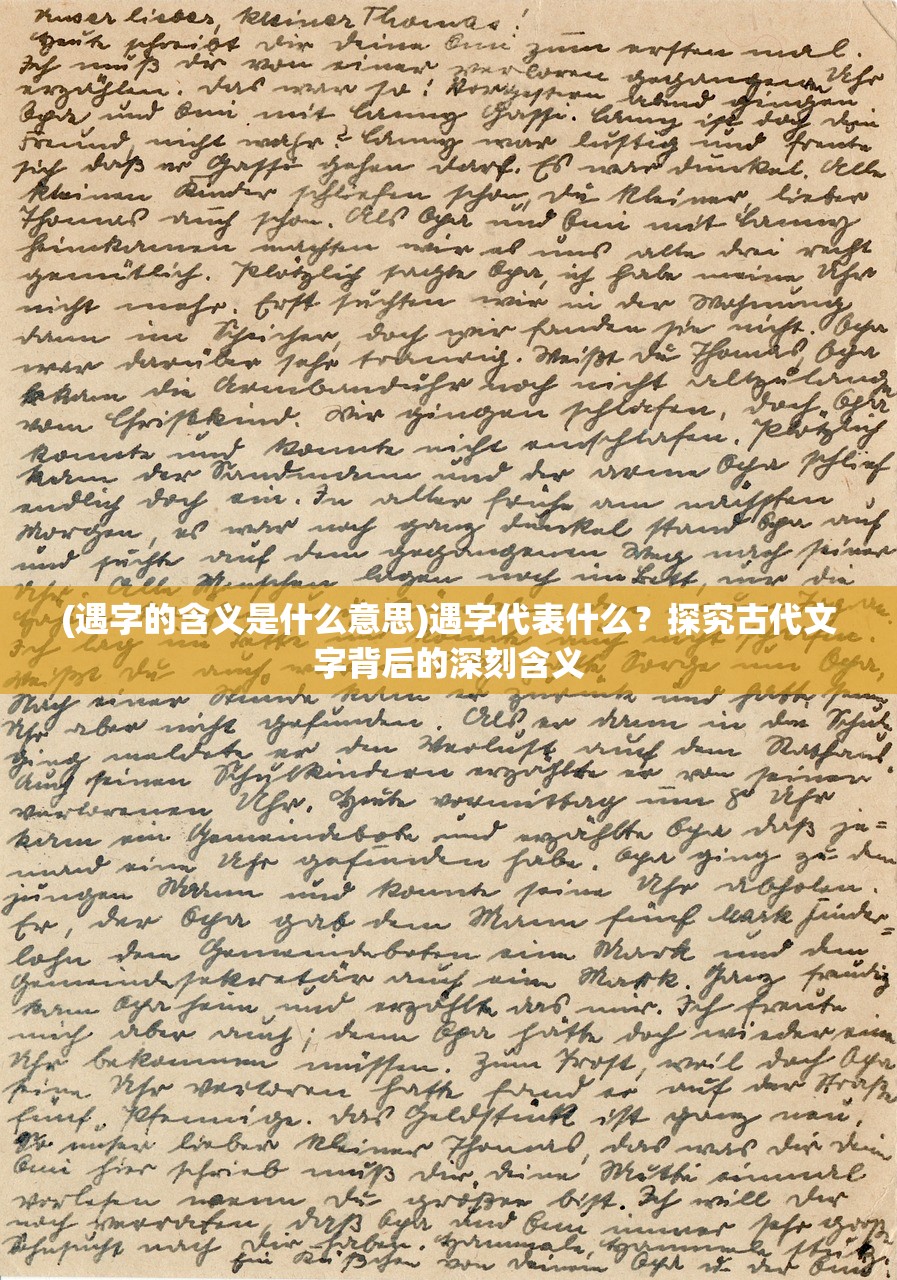 Unser lieber, kleiner Thomas!
Heute schreibt Dir Deine Omi zum ersten mal.
Ich muß Dir von einer verloren gegangenen Uhr
erzählen. Das war so: Vorgestern abend gingen
Opa und Omi mit Lanny Gassi. Lanny ist doch Dein
Freund, nicht wahr? Lanny war lustig und freute
sich daß er Gassi gehen darf. Es war dunkel. Alle
kleinen Kinder schliefen schon, Du kleiner, lieber
Thomas auch schon. Als Opa und Omi mit Lanny
heimkamen machten wir es uns alle drei recht
gemütlich. Plötzlich sagte Opa, ich habe meine Uhr
nicht mehr. Erst suchten wir in der Wohnung
dann im Speicher, doch wir fanden sie nicht. Opa
war darüber sehr traurig. Weißt Du Thomas, Opa
bekam die Armbanduhr noch nicht allzulange
vom Christkind. Wir gingen schlafen, doch Opa
konnte und konnte nicht einschlafen. Plötzlich
kam der Sandmann und der arme Opa schlief
endlich doch ein. In aller frühe am nächsten
Morgen, es war noch ganz dunkel stand Opa auf
und suchte auf dem gegangenen Weg nach seiner
Uhr. Alle Menschen lagen noch im Bett, nur die
(遇字的含义是什么意思)遇字代表什么？探究古代文
字背后的深刻含义
Ich lag im Bette
Weißt Du auch, Sorge um Opa,
Nach einer Stunde kam er zurück und hatte seine
Uhr aber nicht gefunden. Als er dann in die Schule
ging meldete er den Verlust auf dem Rathaus.
Auch seinen Schulkindern erzählte er von seiner
verlorenen Uhr. Heute vormittag um 8° Uhr
kam ein Gemeindebote und erzählte Opa daß je=
mand eine Uhr gefunden habe. Opa ging zu dem
jungen Mann und konnte seine Uhr abholen.
Er, der Opa gab dem Mann fünf Mark Finder=
lohn dem Gemeindeboten eine Mark und dem
Gemeindesekretär auch eine Mark. Ganz freudig
kam Opa heim und erzählte das mir. Ich freute
mich aber auch; denn Opa hätte doch wieder eine
Uhr bekommen müssen. Zum Trost, weil doch Opa
seine Uhr verloren hatte fand er auf der Straße
fünf Pfennige. Das Geldstück ist ganz neu.
So unser lieber kleiner Thomas, das was Dir Deine
Omi hier schrieb muß Dir Deine Mutti einmal
vorlesen wenn Du größer bist. Ich will Dir
noch verraten, daß Opa und Omi immer sehr große
Sehnsucht nach Dir haben.
Ein Küßchen von Deinem Opa u. der Omi